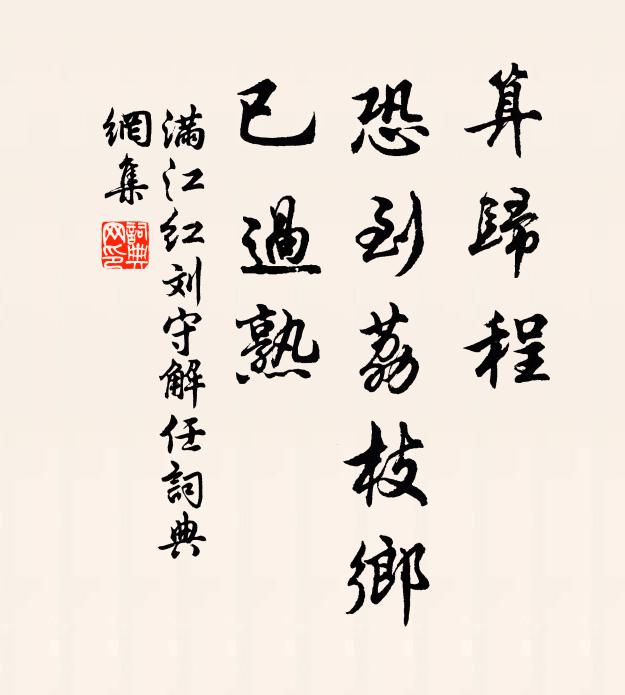 算歸程
恐到荔枝鄉
已過熟
满江红刘守解任詞典
網集
詞典
网印